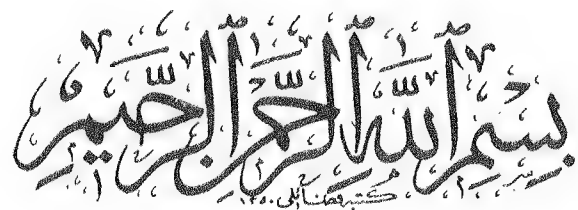 بِسْمِ اللَّهِ الرَّحْمَٰنِ الرَّحِيمِ
كتبه